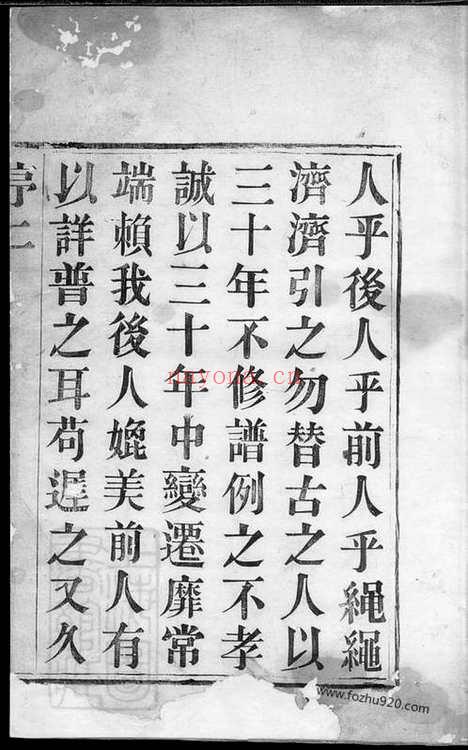 人乎後人乎前人乎繩繩
濟濟引之勿替古之人以
三十年不修譜例之不孝
誠以三十年中變遷靡常
端賴我後人媲美前人有
以詳普之耳苟遲之又久
序二
nayona.cn
www.fozhu920.com